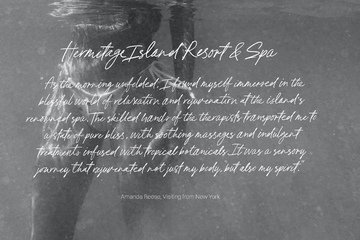 Hermitage Island Resort & Spa
As the morning unfolded, I found myself immersed in the
blissful world of relaxation and rejuvenation at the island's
renowned spa. The skilled hands of the therapists transported me to
a state of pure bliss, with soothing massages and indulgent
treatments infused with tropical botanicals. It was a sensory
journey that rejuvenated not just my body, but also my spirit."
- Amanda Reese, Visiting from New York